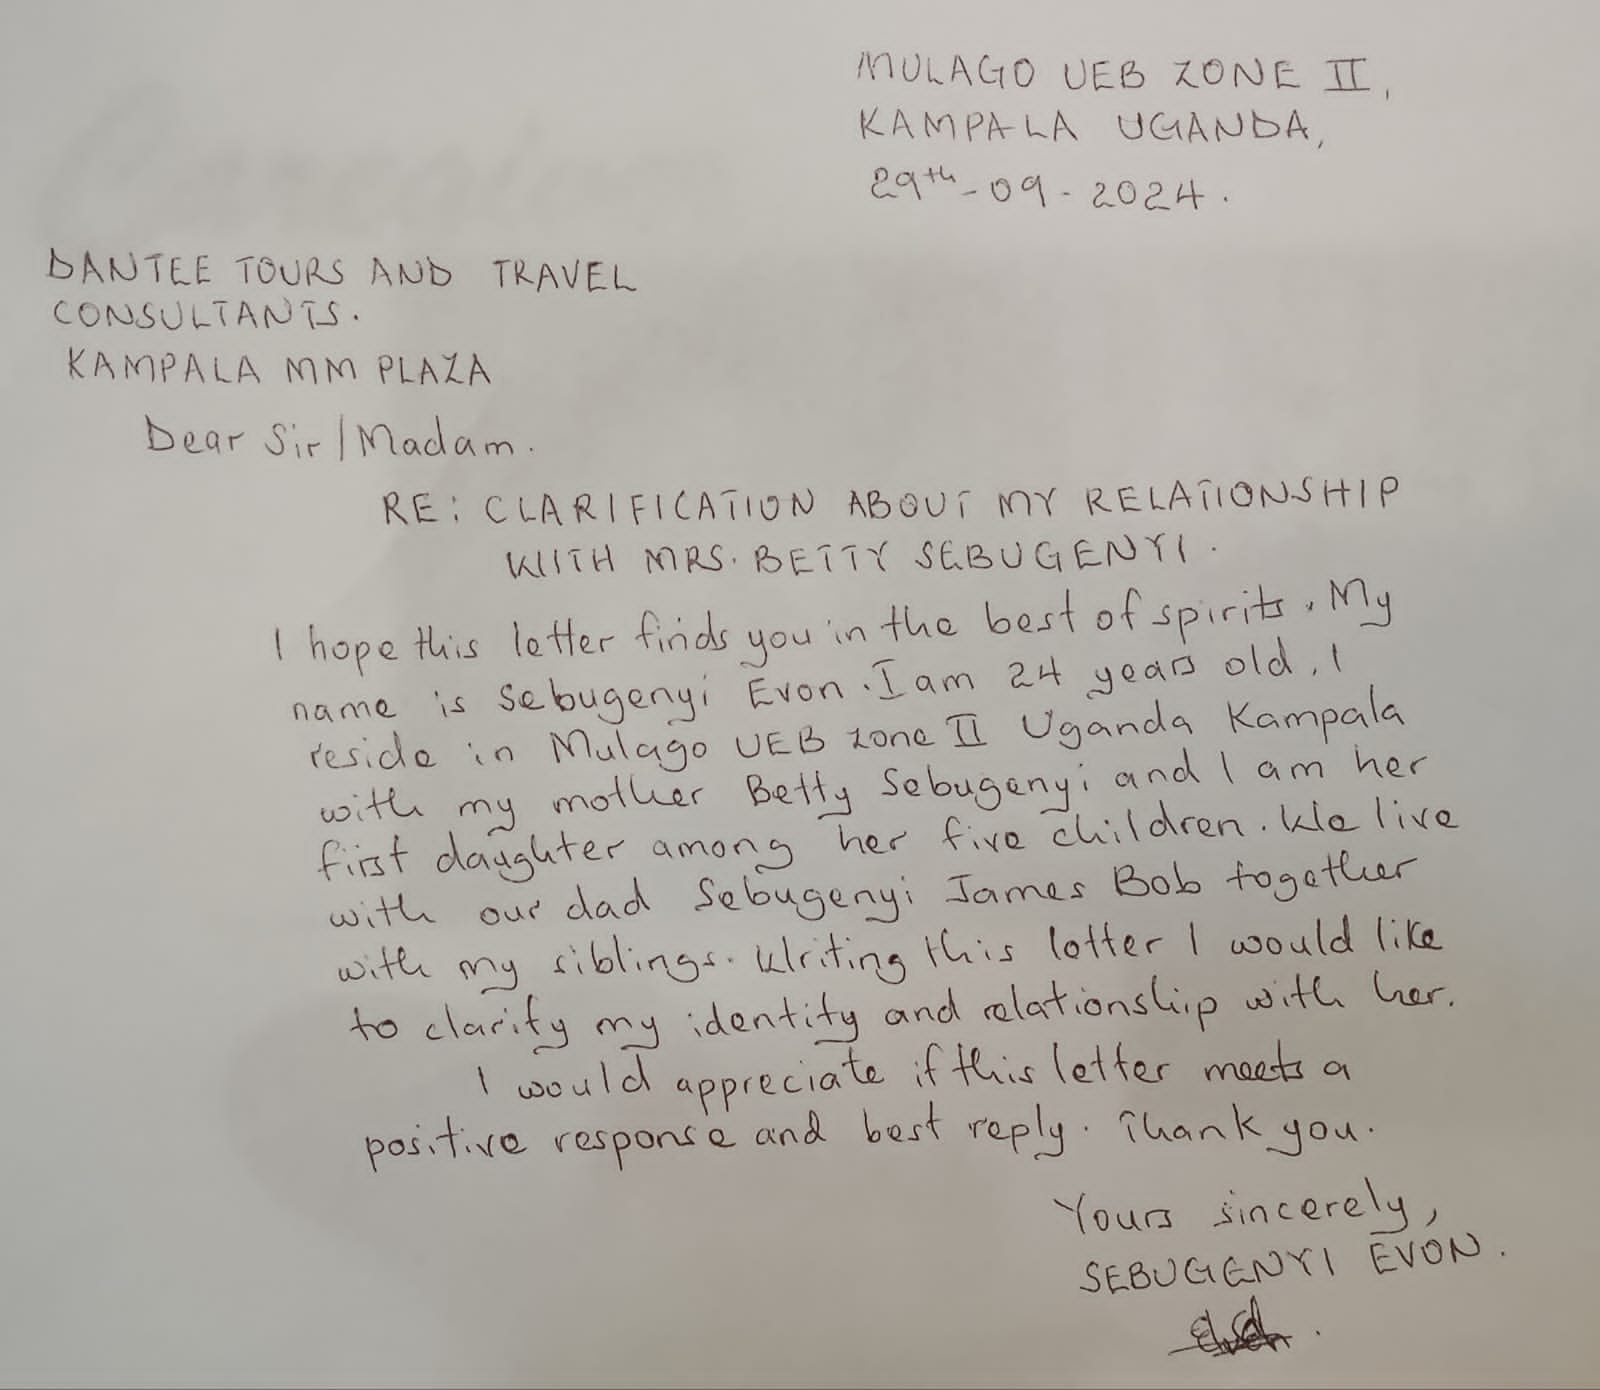 MULAGO UEB ZONE II,
KAMPALA UGANDA,
29th-09-2024.
DANTEE TOURS AND TRAVEL
CONSULTANTS.
KAMPALA MM PLAZA
Dear Sir/Madam.
RE: CLARIFICATION ABOUT MY RELATIONSHIP
WITH MRS. BETTY SEBUGENYI.
I hope this letter finds you in the best of spirits. My
name is Sebugenyi Evon. I am 24 years old. I
reside in Mulago UEB zone II Uganda Kampala
with my mother Betty Sebugenyi and I am her
first daughter among her five children. We live
with our dad Sebugenyi James Bob together
with my siblings. Writing this letter I would like
to clarify my identity and relationship with her.
I would appreciate if this letter meets a
positive response and best reply. Thank you.
Yours sincerely,
SEBUGENYI EVON.